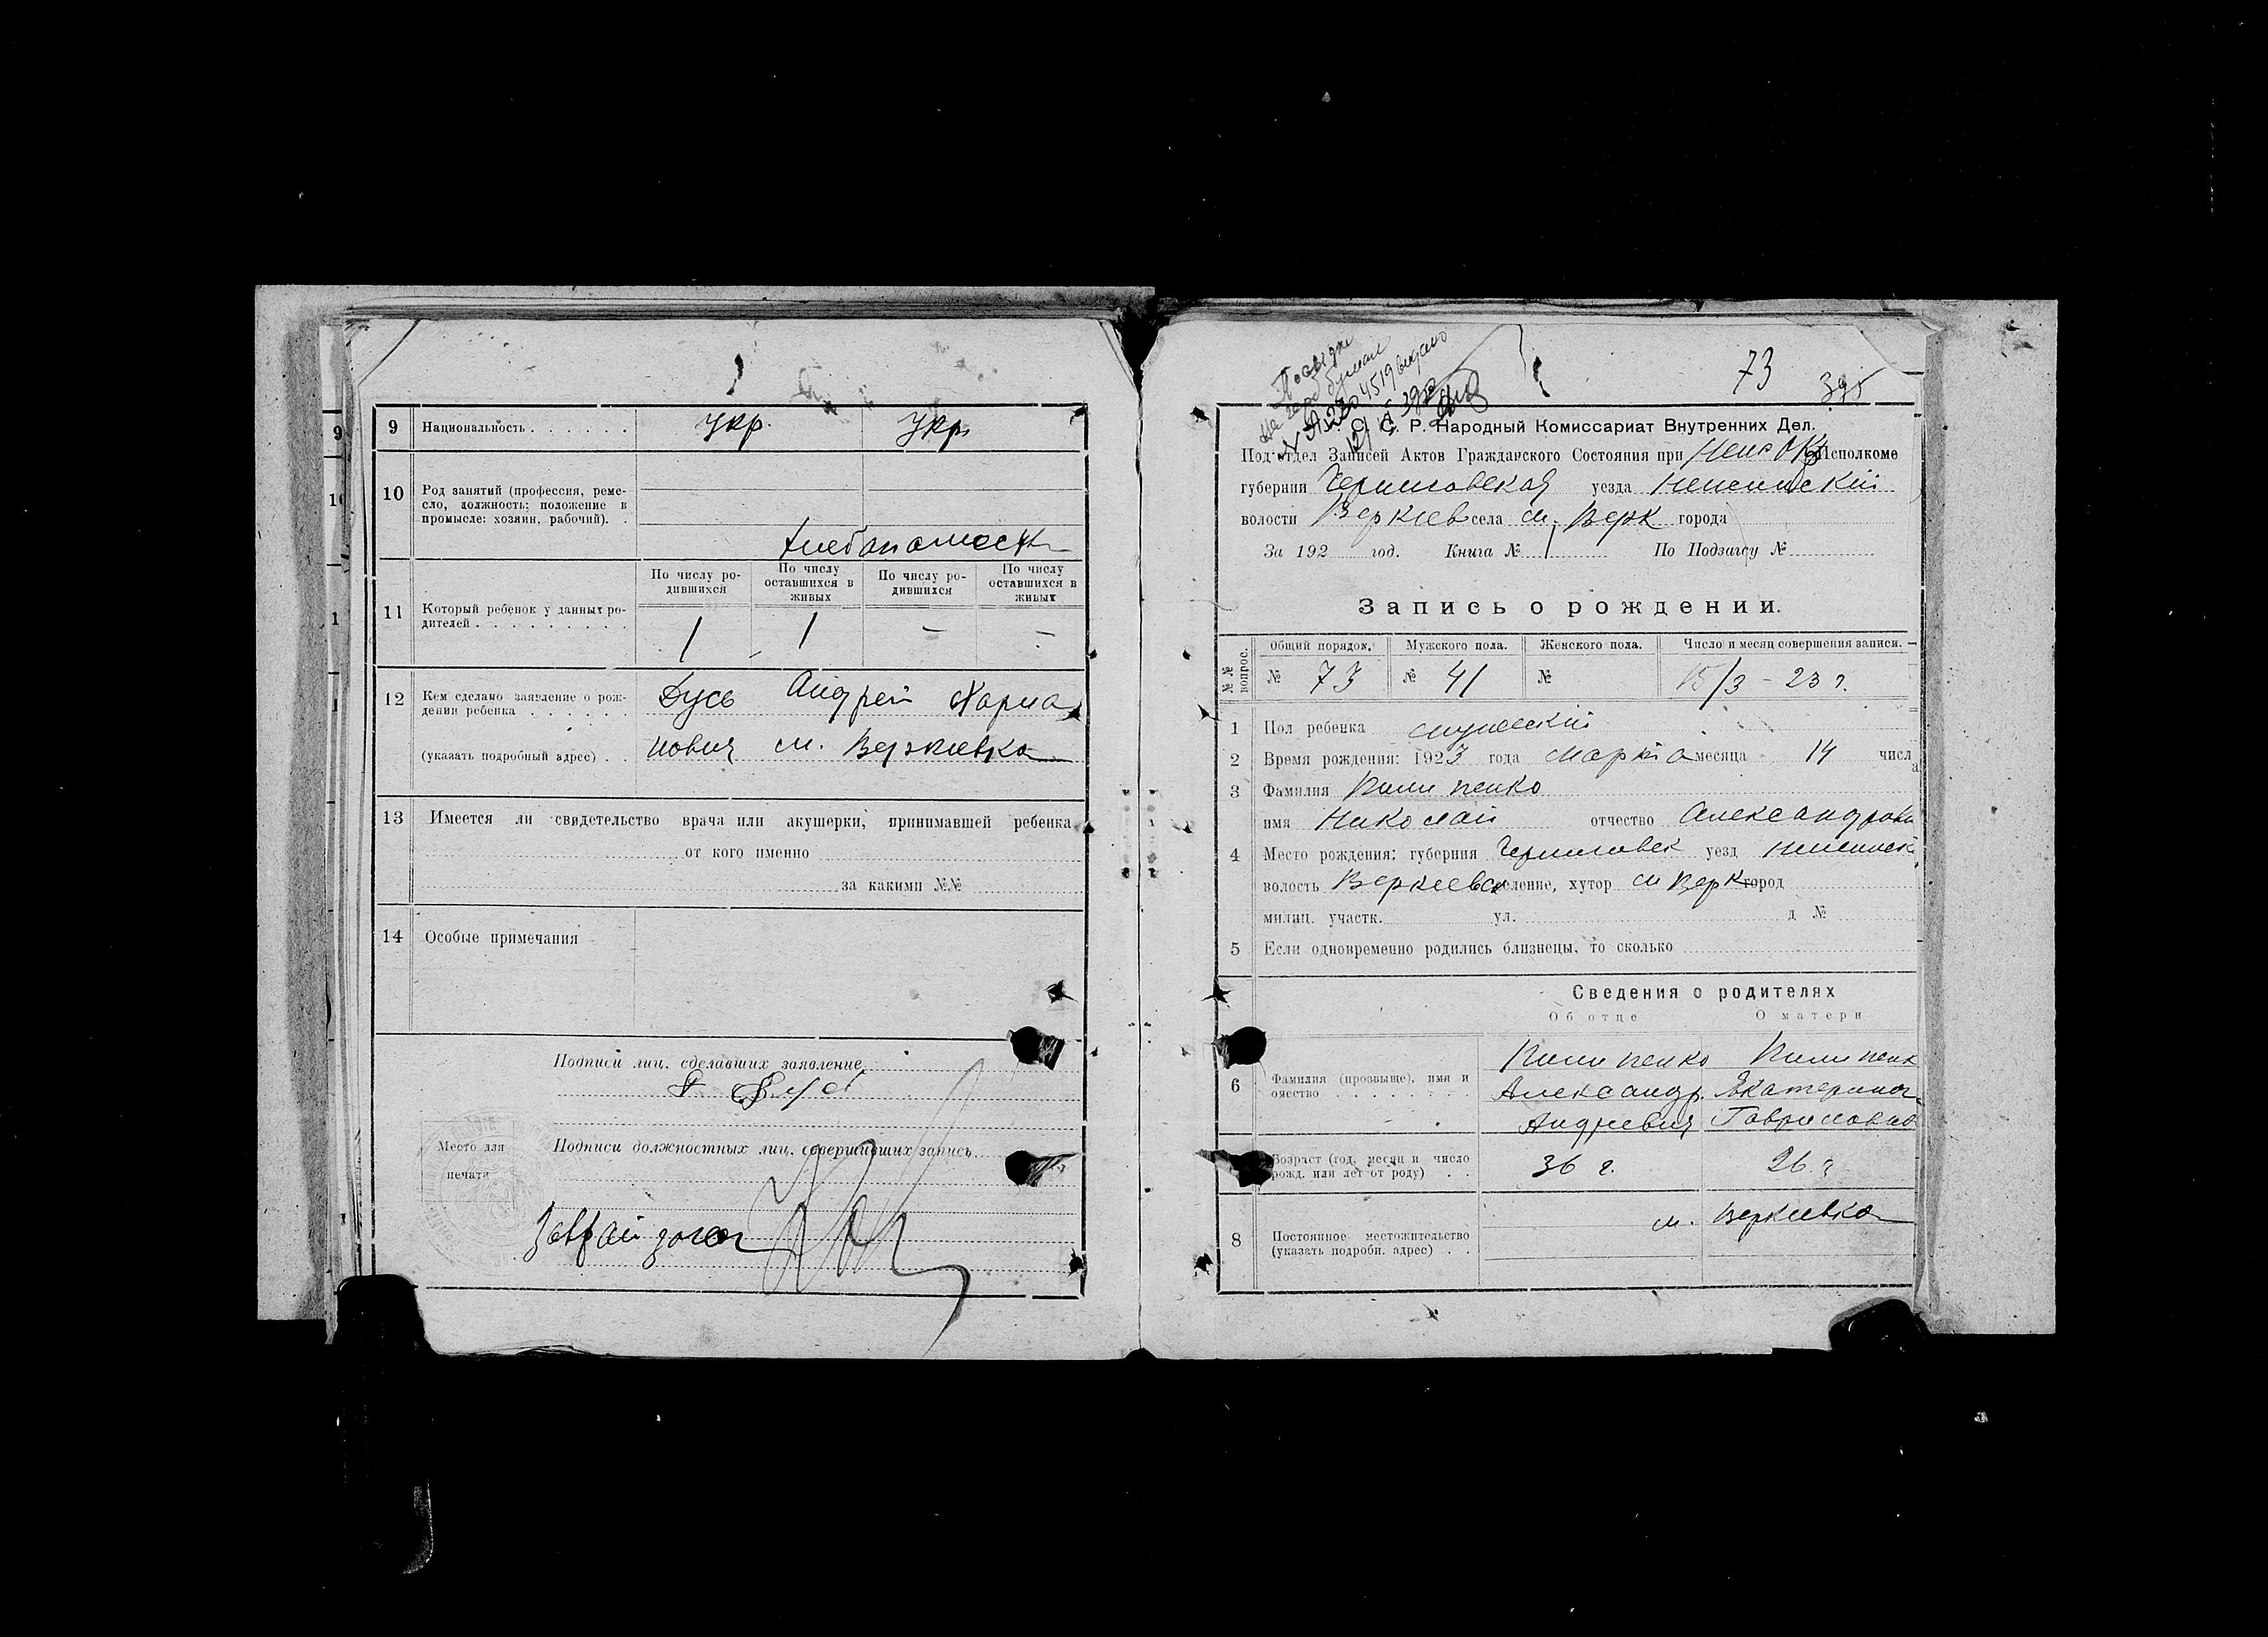 9 Национальность . . . . . . укр. укр.
10 Род занятий (профессия, реме-
сло, должность; положение в
промысле: хозяин, рабочий). .
хлебопашест
По числу ро-
дившихся
По числу
оставшихся в
живых
По числу ро-
дившихся
По числу
оставшихся в
живых
11 Который ребенок у данных ро-
дителей . . . . . . . . . 1 1 – –
12 Кем сделано заявление о рож-
дении ребенка . . . . . . Дусь Андрей Харла
(указать подробный адрес) . . нович м. Веркиевка
13 Имеется ли свидетельство врача или акушерки, принимавшей ребенка
от кого именно
за какими №№
14 Особые примечания
Подписи лиц, сделавших заявление
Место для
печати
Подписи должностных лиц, совершивших запись
73
С. С. Р. Народный Комиссариат Внутренних Дел.
Под'отдел Записей Актов Гражданского Состояния при Исполкоме
губернии Черниговская уезда Неженский
волости Веркиев села м. Верк города
За 192 год. Книга № 1 По Подзагсу №
Запись о рождении.
№№ вопрос.
Общий порядок. Мужского пола. Женского пола. Число и месяц совершения записи.
№ 73 № 41 № 15/3 – 23 г.
1 Пол ребенка мужеский
2 Время рождения: 1923 года марта месяца 14 числа
3 Фамилия Пилипенко
имя Николай отчество Александрови
4 Место рождения: губерния Черниговск уезд Неженск
волость Веркиевск селение, хутор м Верк город
милиц. участк. ул. д №
5 Если одновременно родились близнецы, то сколько
Сведения о родителях
Об отце О матери
Пилипенко Пилипенк
6 Фамилия (прозвыще), имя и
ояество . . . . . . . . Александр Екатерина
Андреевич Гавриловна
Возраст (год, месяц и число
рожд. или лет от роду) . . 36 г. 26 г
м. Веркиевка
8 Постоянное местожительство
(указать подробн. адрес) . .